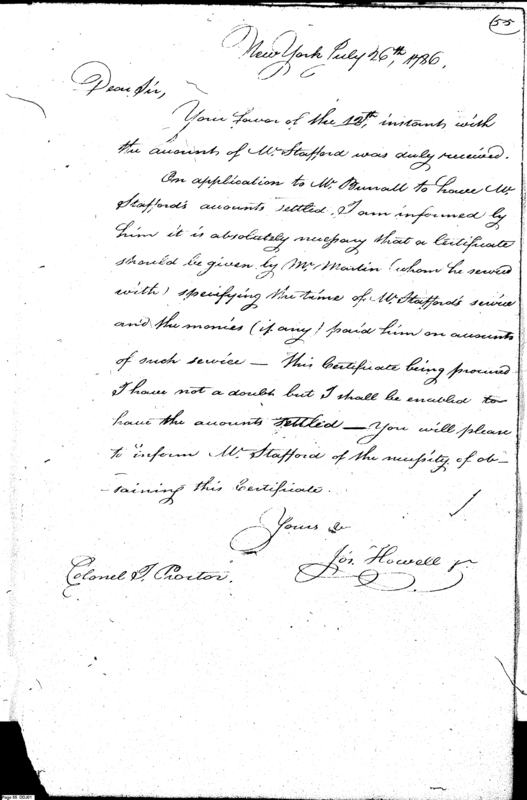 55
New York July 26th, 1786.
Dear Sir,
Your favor of the 12th, instant with
the accounts of Mr. Stafford was duly received.
On application to Mr. Burrall to have Mr
Stafford's accounts settled, I am informed by
him it is absolutely necessary that a Certificate
should be given by Mr Martin (whom he served
with) specifying the time of Mr. Stafford's service
and the monies (if any) paid him on accounts
of such service — this Certificate being procured
I have not a doubt but I shall be enabled to
have the accounts settled — You will please
to inform Mr. Stafford of the necessity of ob-
-taining this Certificate.
Yours &
Jos. Howell Jr.
Colonel T. Proctor.
Page 55